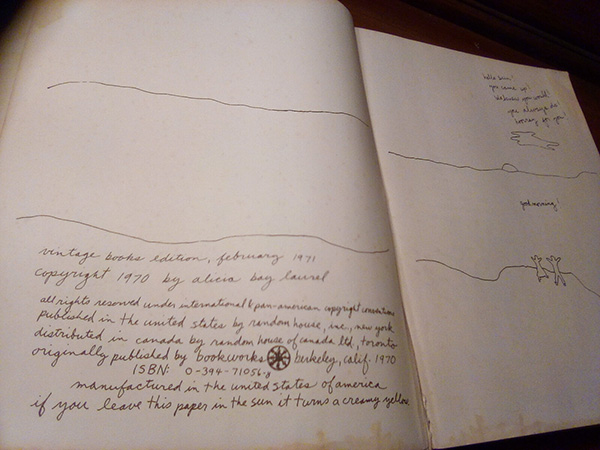 vintage books edition, february 1971
copyright 1970 by alicia bay laurel
all rights reserved under international & pan-american copyright conventions
published in the united states by random house, inc., new york
distributed in canada by random house of canada ltd, toronto
originally published by bookworks berkeley, calif. 1970
ISBN: 0-394-71056-8
manufactured in the united states of america
if you leave this paper in the sun it turns a creamy yellow.
hello sun!
you came up!
we knew you would!
you always do!
hooray for you!
good morning!